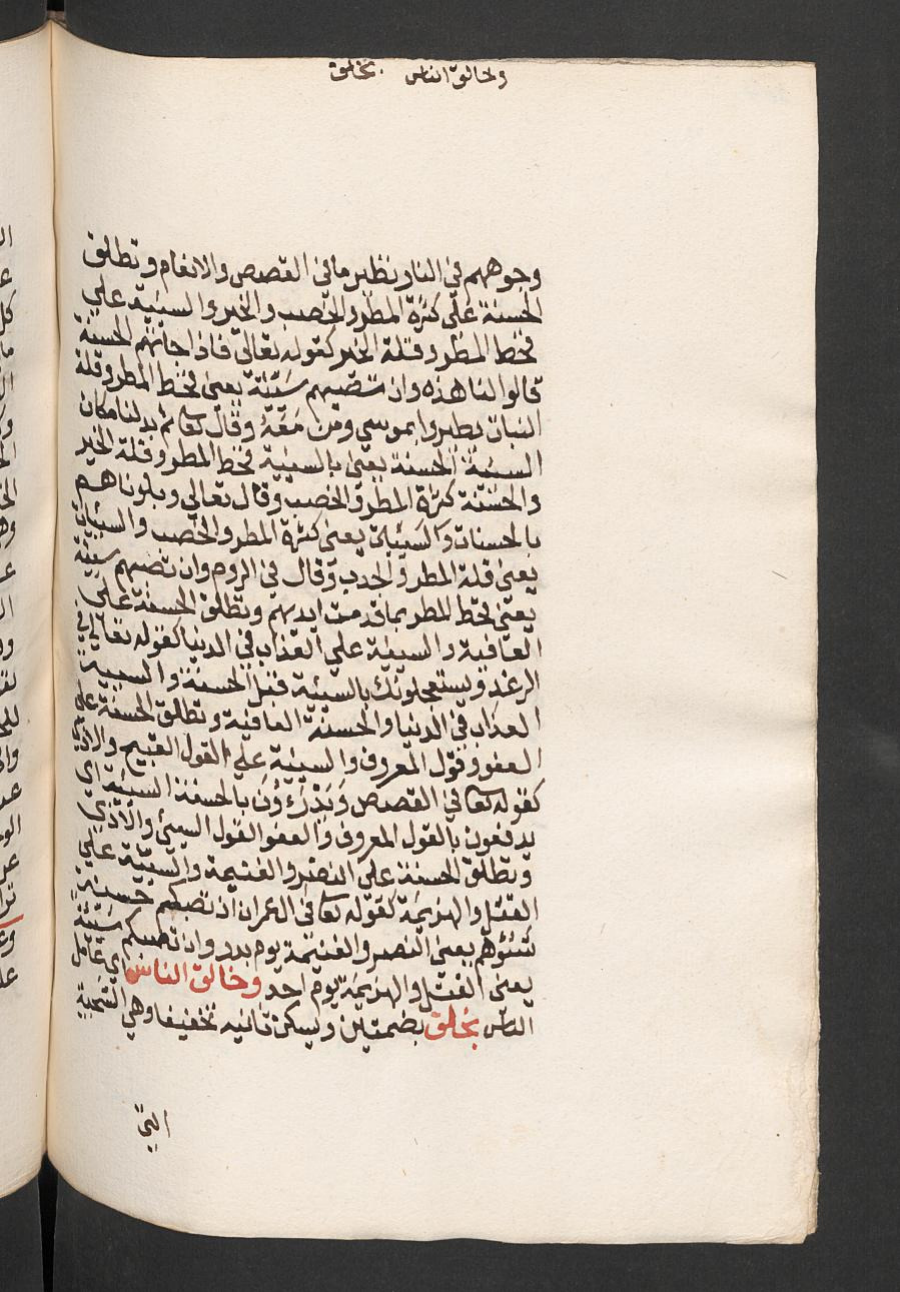 وخالق الناس بخلق
وجوههم في النار نظير ما في القصص والانعام وتطلق
الحسنة على كثرة المطر والخصب والخير والسيئة على
قحط المطر وقلة الخير كقوله تعالى فاذا جاتهم الحسنة
قالوا لنا هذه وان تصبهم سَيّئة يعني قحط المطر وقلة
النبات يطيروا بموسي ومن مَعَهُ وقال تعا ثم بدلنا مكان
السيئة الحسنة يعني بالسيئة قحط المطر وقلة الخير
والحَسَنة كثرة المطر والخصب وقال تعالي وبلوناهم
بالحسنات والسَيئات يعني كثرة المطر والخصب والسيئات
يعني قلة المطر والجدب وقال في الروم وان تصبهم سيئة
يعني قحط المطر بما قدمت ايديهم وتطلق الحسنة على
العافية والسيئة على العذاب في الدنيا كقوله تعالى في
الرعد ويستعجلونك بالسيئة قبل الحسنة والسيئة
العذاب في الدنيا والحسنة العافية وتطلق الحسنة على
العفو وقول المعروف والسيئة على القول القبيح والاذي
كقوله تعا في القصص وَيَدْرَءُونَ بالحسنة السيئة اي
يدفعون بالقول المعروف والعفو القول السيئ والاذي
وتطلق الحسنة علي النصر والغنيمة والسيئة علي
القتل والهزيمَة كقوله تعا في ال عمران ان تصبكم حسنة
تسُؤهم يعني النصر والغنيمة يوم بدر وان تصبكم سَيّئة
يعني القتل والهزيمَة يوم احد وخالق الناس اي عامل
الناس بخلق بضمتين ويسكن ثانيه تخفيفا وهي السَجية
التي